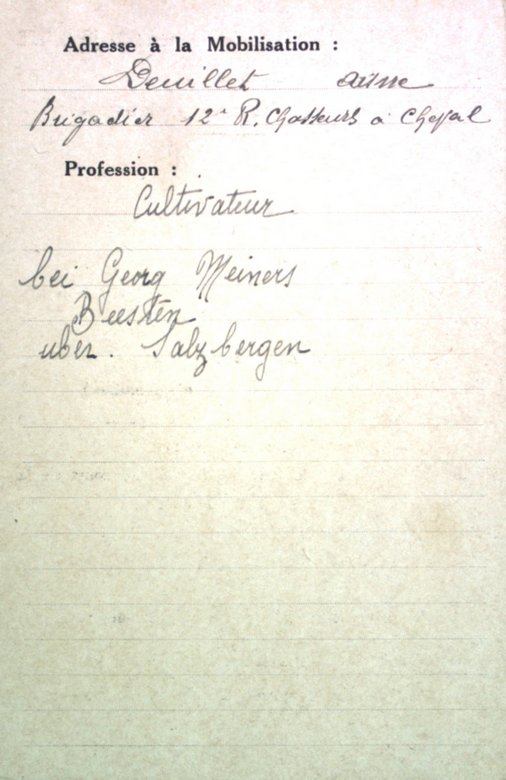 Adresse à la Mobilisation :
Deuillet aisne
Brigadier 12e R. Chasseurs à Cheval
Profession :
Cultivateur
bei Georg Meiners
Beesten
uber. Salzbergen